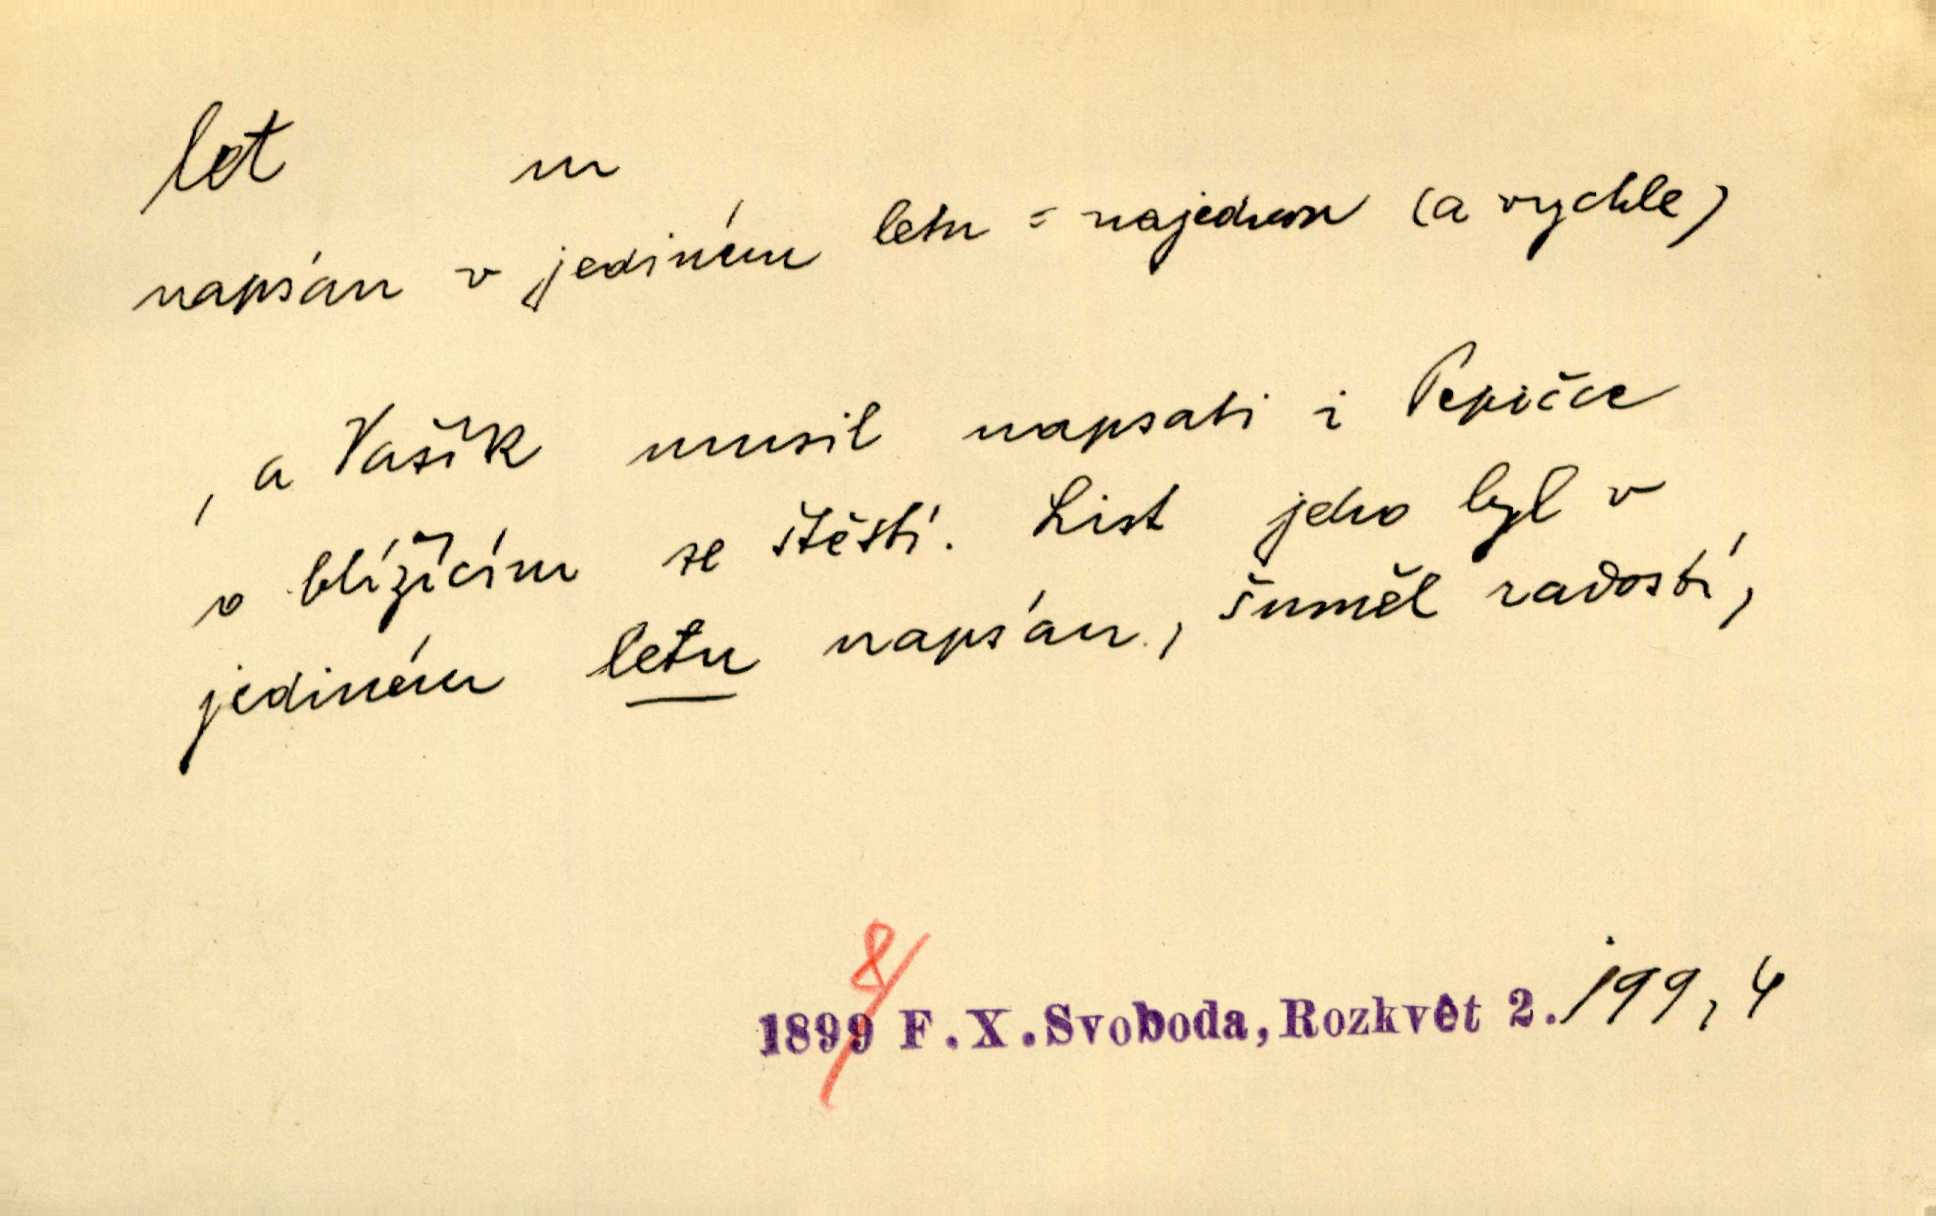 let m
napsán v jediném letu = najednou (a rychle)
, a Vašík musil napsati i Pepičce
o blížícím se štěstí. List jeho byl v
jediném letu napsán, šuměl radostí,
8
1899 F.X.Svoboda, Rozkvět 2. 199, 4